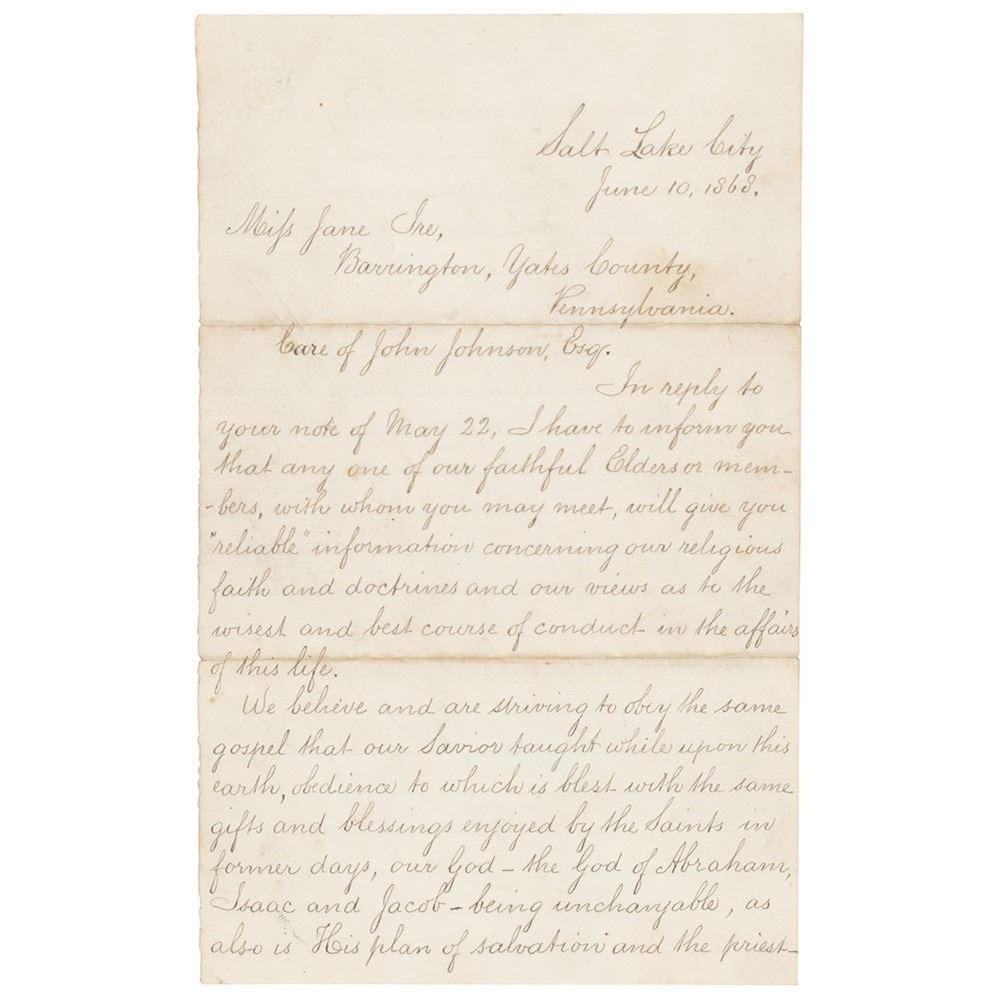 Salt Lake City
June 10, 1868.
Miss Jane Ire,
Barrington, Yates County,
Pennsylvania.
Care of John Johnson, Esq.
In reply to
your note of May 22, I have to inform you
that any one of our faithful Elders or mem-
-bers, with whom you may meet, will give you
"reliable" information concerning our religious
faith and doctrines and our views as to the
wisest and best course of conduct in the affairs
of this life.
We believe and are striving to obey the same
gospel that our Savior taught while upon this
earth, obedience to which is blest with the same
gifts and blessings enjoyed by the Saints in
former days, our God – the God of Abraham,
Isaac and Jacob – being unchangable, as
also is His plan of salvation and the priest-